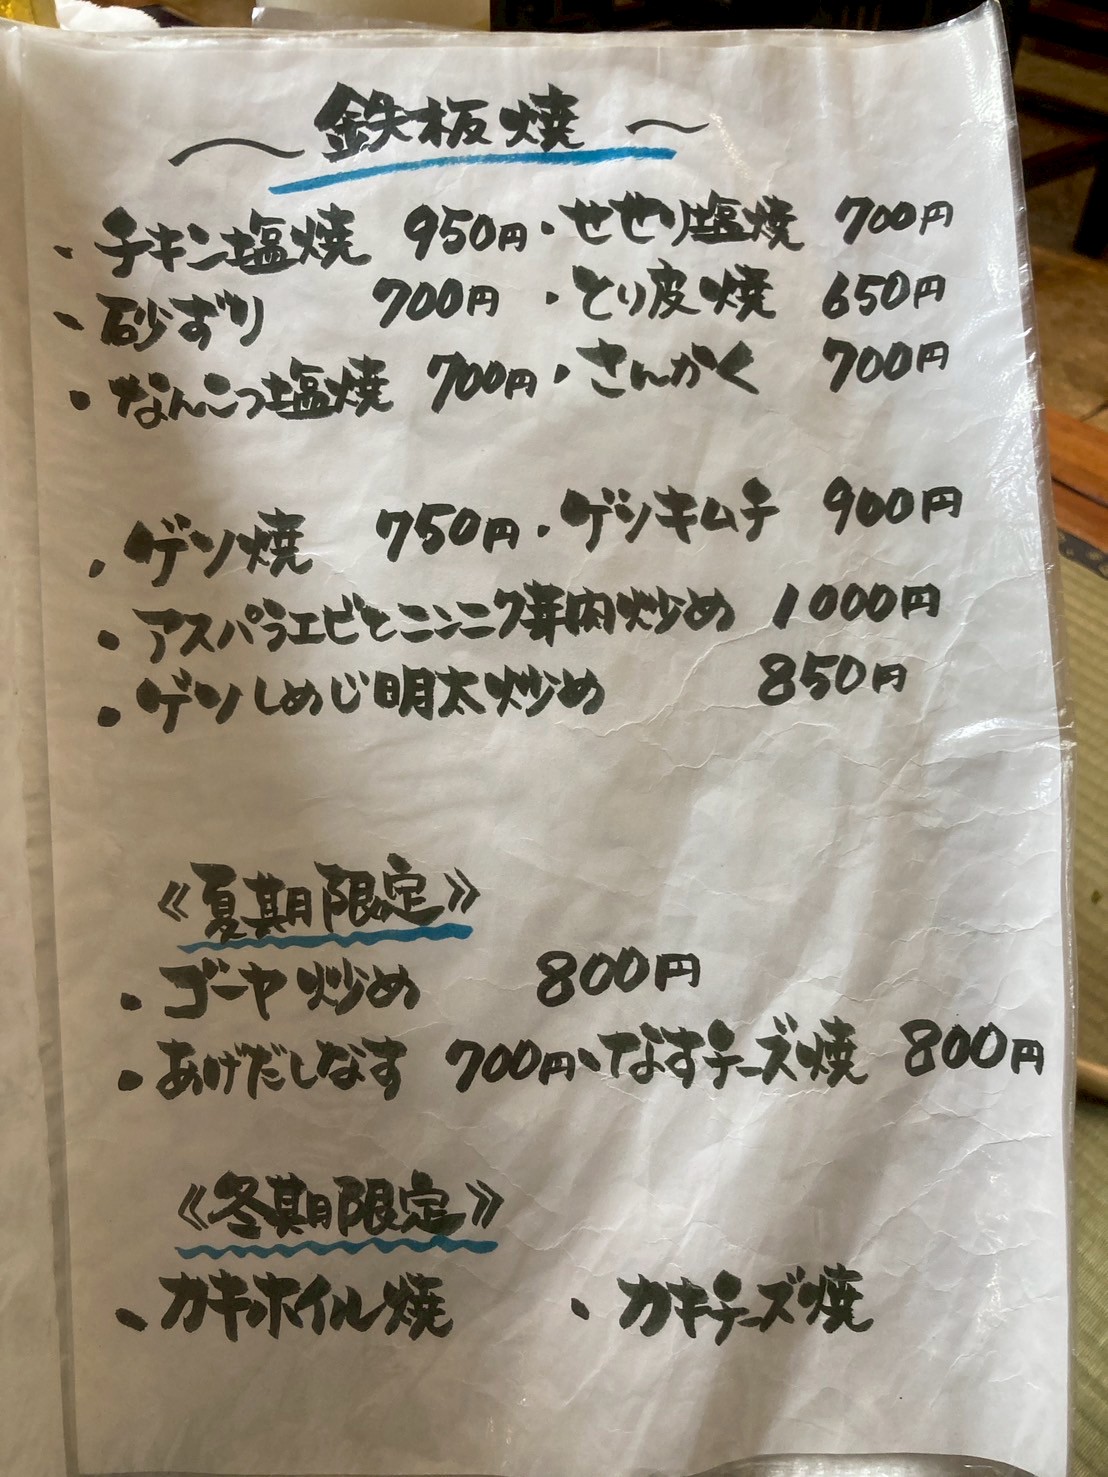 ～鉄板焼～
・チキン塩焼 950円・せせり塩焼 700円
・砂ずり 700円・とり皮焼 650円
・なんこつ塩焼 700円・さんかく 700円
・ゲソ焼 750円・ゲソキムチ 900円
・アスパラエビとニンニク芽肉炒め 1000円
・ゲソしめじ明太炒め 850円
《夏期限定》
・ゴーヤ炒め 800円
・あげだしなす 700円・なすチーズ焼 800円
《冬期限定》
・カキホイル焼 ・カキチーズ焼